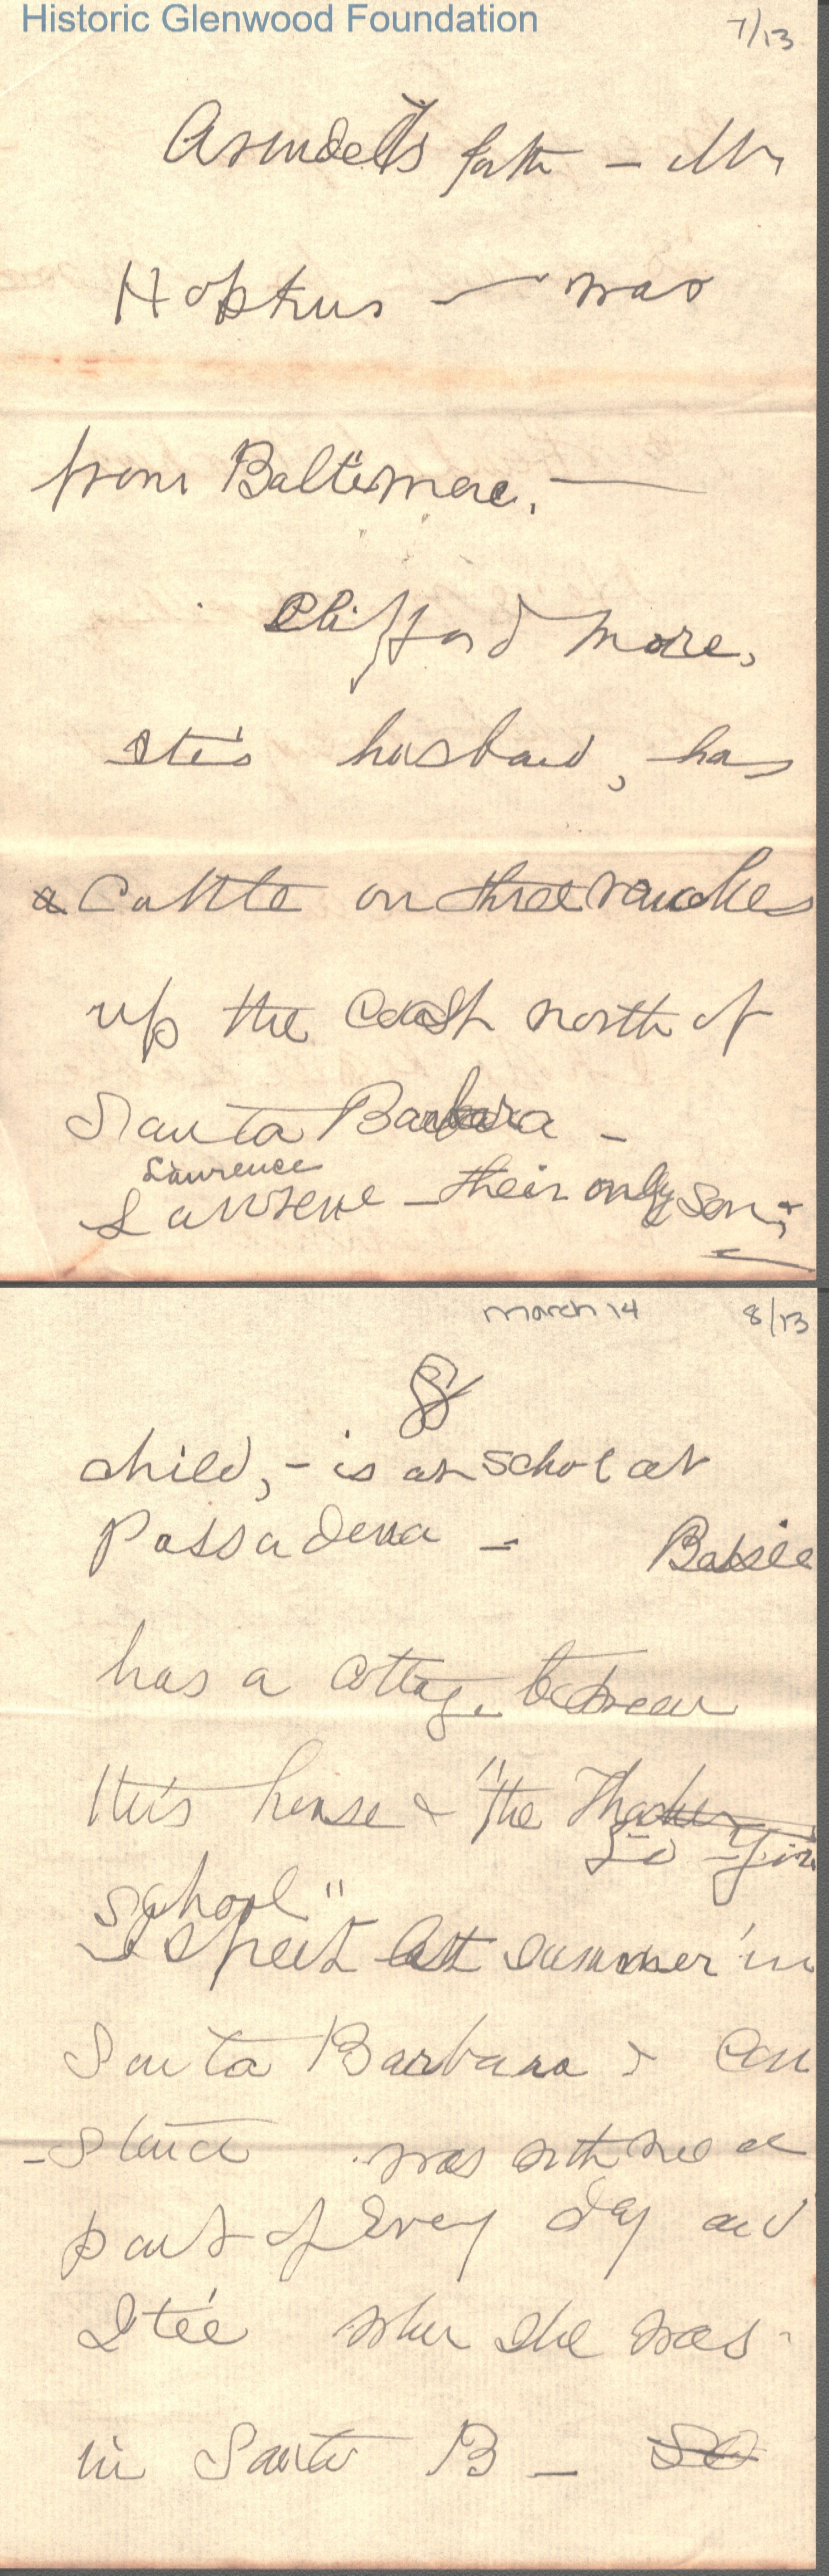 Historic Glenwood Foundation
7/13
Arundel's fath - Mr
Hopkins — was
from Baltimore. —
Clifford More,
Ite's husband, has
Cattle on three ranches
up the coast north of
Santa Barbara -
Lawrence
Lawrence - their only son;
March 14
8/13
8
child, - is at school at
Passadena -
has a cottage between
this house & "the Thacher
school"
I spent last summer in
Santa Barbara & Con
-stance was with me a
part of every day and
Itée when she was
in Santa B - So